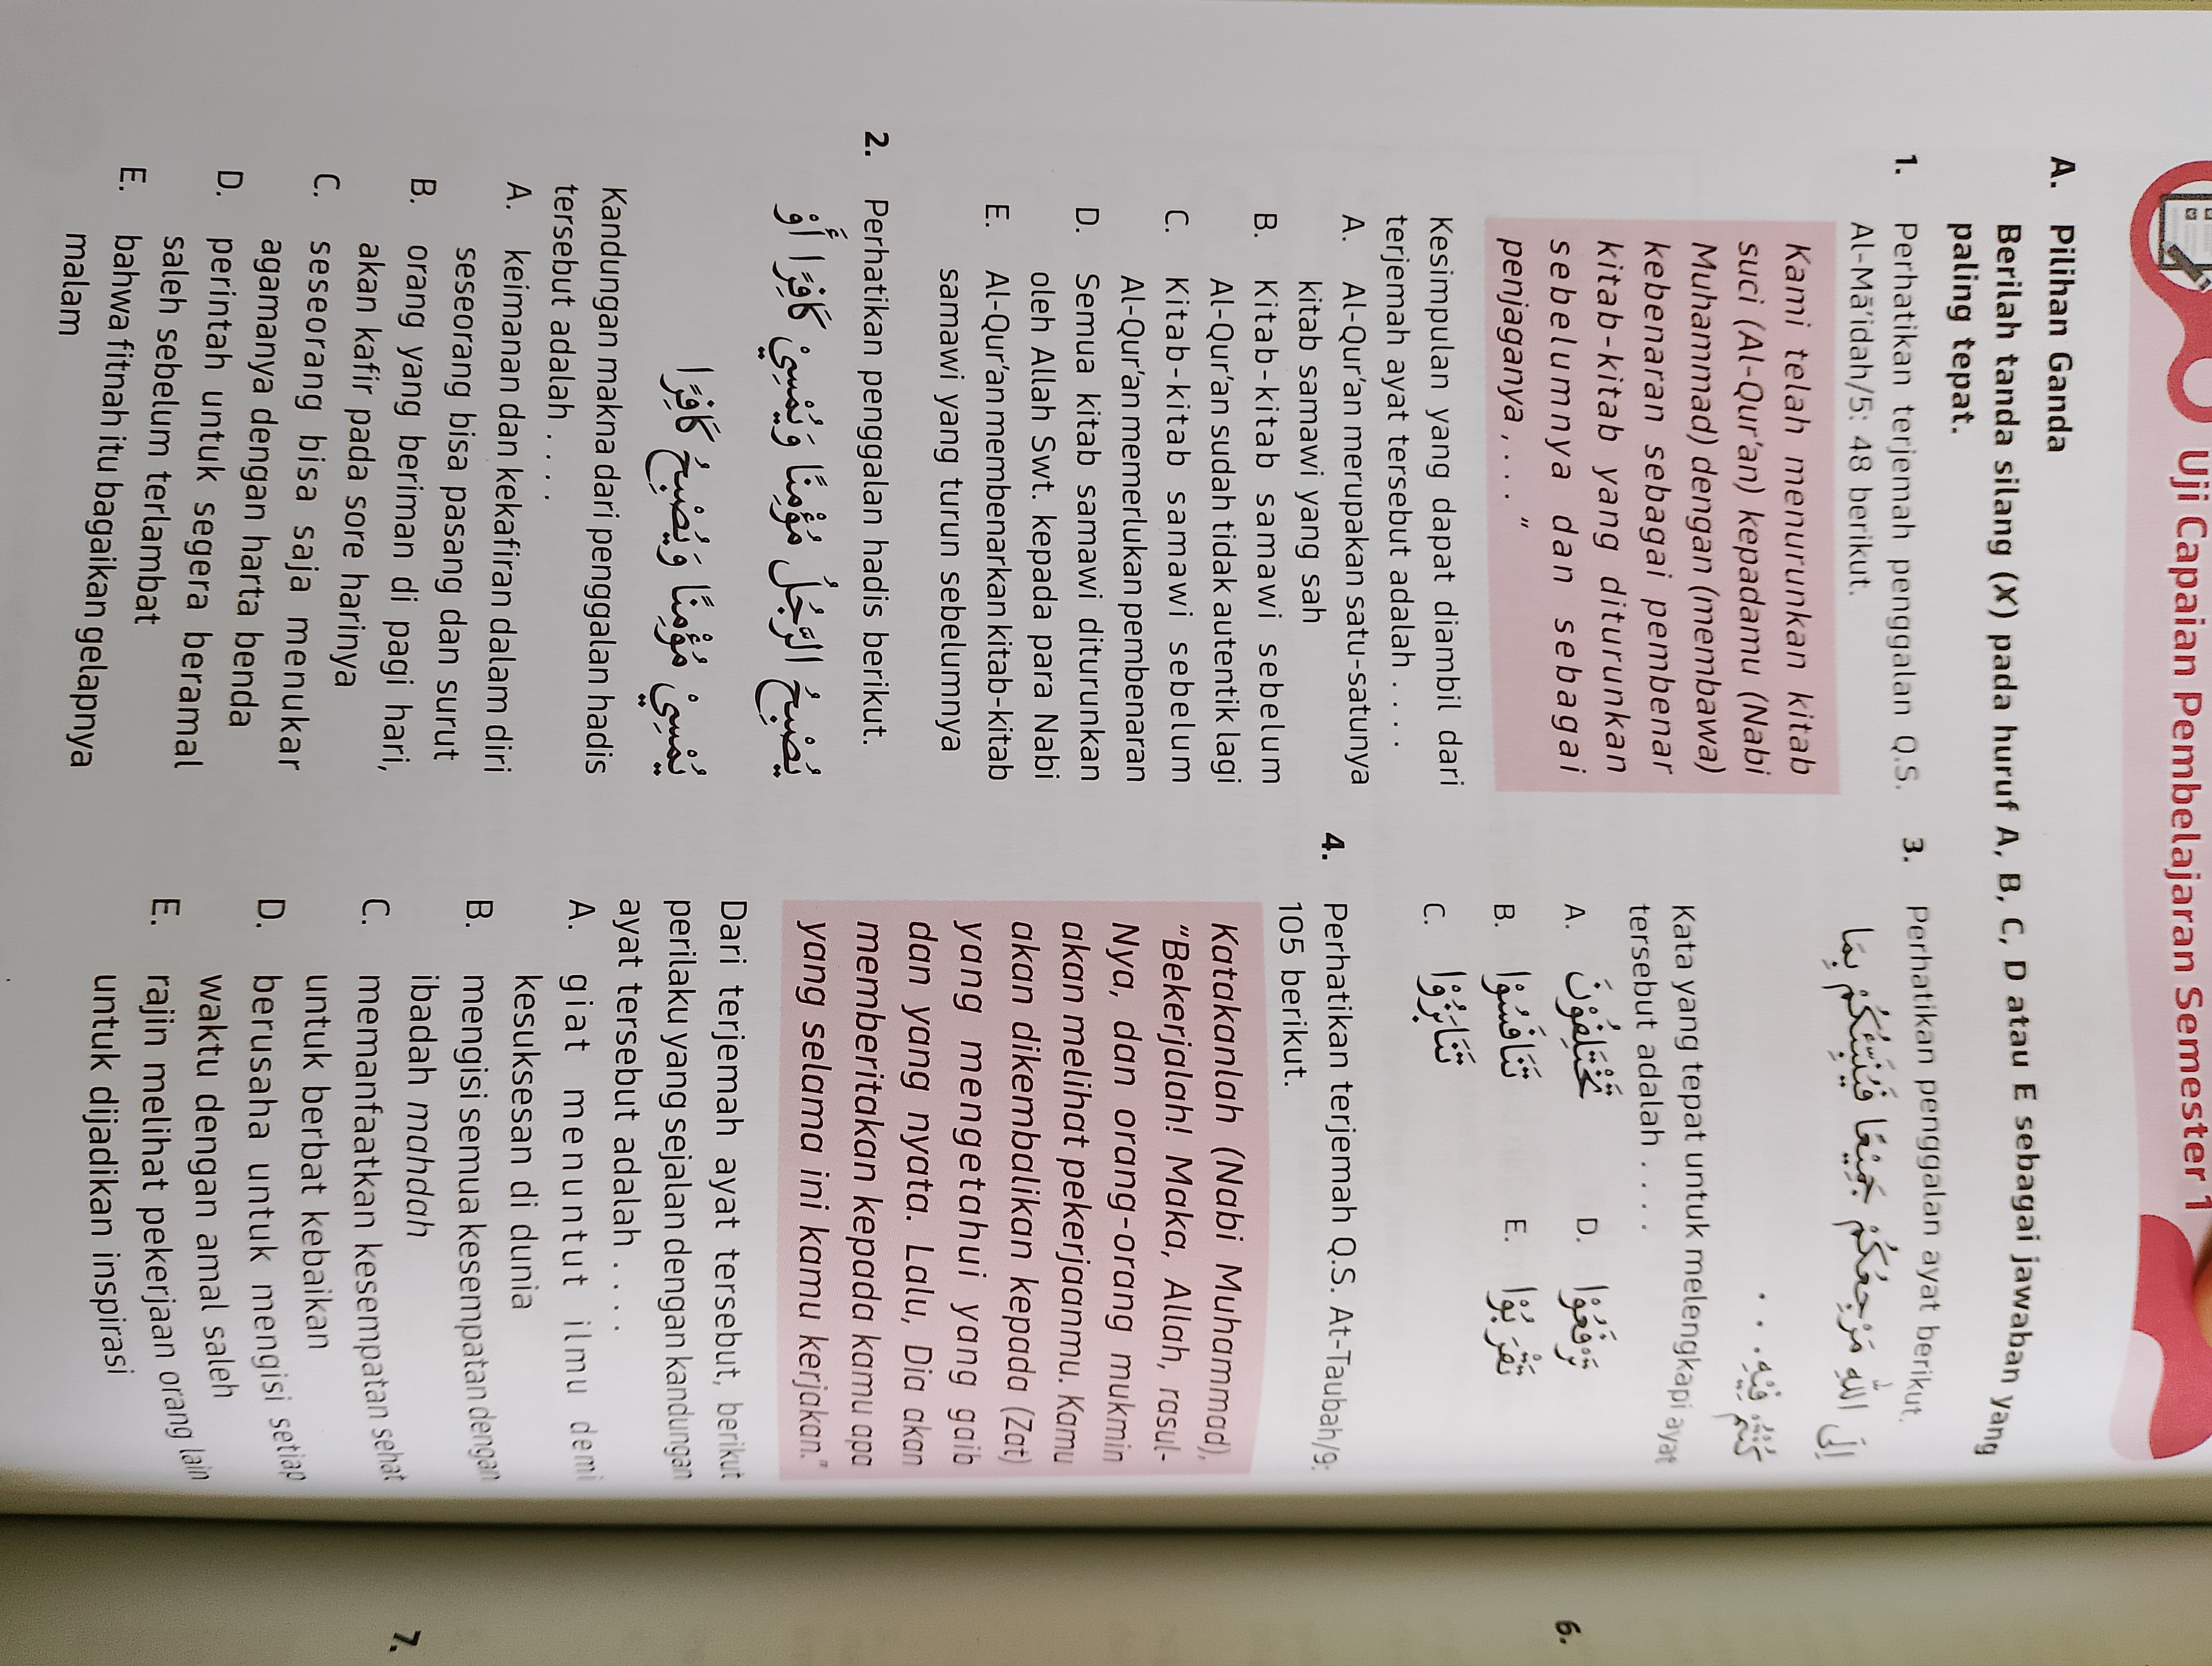 Uji Capaian Pembelajaran Semester 1
A. Pilihan Ganda
Berilah tanda silang (X) pada huruf A, B, C, D atau E sebagai jawaban yang
paling tepat.
1. Perhatikan terjemah penggalan Q.S.
Al-Mā'idah/5: 48 berikut.
Kami telah menurunkan kitab
suci (Al-Qur'an) kepadamu (Nabi
Muhammad) dengan (membawa)
kebenaran sebagai pembenar
kitab-kitab yang diturunkan
sebelumnya dan sebagai
penjaganya, . . . "
Kesimpulan yang dapat diambil dari
terjemah ayat tersebut adalah . . . .
A. Al-Qur'an merupakan satu-satunya
kitab samawi yang sah
B. Kitab-kitab samawi sebelum
Al-Qur'an sudah tidak autentik lagi
C. Kitab-kitab samawi sebelum
Al-Qur'an memerlukan pembenaran
D. Semua kitab samawi diturunkan
oleh Allah Swt. kepada para Nabi
E. Al-Qur'an membenarkan kitab-kitab
samawi yang turun sebelumnya
2. Perhatikan penggalan hadis berikut.
يُصْبِحُ الرَّجُلُ مُؤْمِنًا وَيُمْسِيْ كَافِرًا أَوْ
يُمْسِيْ مُؤْمِنًا وَيُصْبِحُ كَافِرًا
Kandungan makna dari penggalan hadis
tersebut adalah . . . .
A. keimanan dan kekafiran dalam diri
seseorang bisa pasang dan surut
B. orang yang beriman di pagi hari,
akan kafir pada sore harinya
C. seseorang bisa saja menukar
agamanya dengan harta benda
D. perintah untuk segera beramal
saleh sebelum terlambat
E. bahwa fitnah itu bagaikan gelapnya
malam
3. Perhatikan penggalan ayat berikut.
اِلَى اللّٰهِ مَرْجِعُكُمْ جَمِيْعًا فَيُنَبِّئُكُمْ بِمَا
كُنْتُمْ فِيْهِ . . . .
Kata yang tepat untuk melengkapi ayat
tersebut adalah . . . .
A. تَخْتَلِفُوْنَ D. تَرْفَعُوْا
B. تَنَافَسُوْا E. تَقْرَبُوْا
C. تَنَابَزُوْا
4. Perhatikan terjemah Q.S. At-Taubah/9:
105 berikut.
Katakanlah (Nabi Muhammad),
"Bekerjalah! Maka, Allah, rasul-
Nya, dan orang-orang mukmin
akan melihat pekerjaanmu. Kamu
akan dikembalikan kepada (Zat)
yang mengetahui yang gaib
dan yang nyata. Lalu, Dia akan
memberitakan kepada kamu apa
yang selama ini kamu kerjakan."
Dari terjemah ayat tersebut, berikut
perilaku yang sejalan dengan kandungan
ayat tersebut adalah . . . .
A. giat menuntut ilmu demi
kesuksesan di dunia
B. mengisi semua kesempatan dengan
ibadah mahdah
C. memanfaatkan kesempatan sehat
untuk berbat kebaikan
D. berusaha untuk mengisi setiap
waktu dengan amal saleh
E. rajin melihat pekerjaan orang lain
untuk dijadikan inspirasi
6.
7.